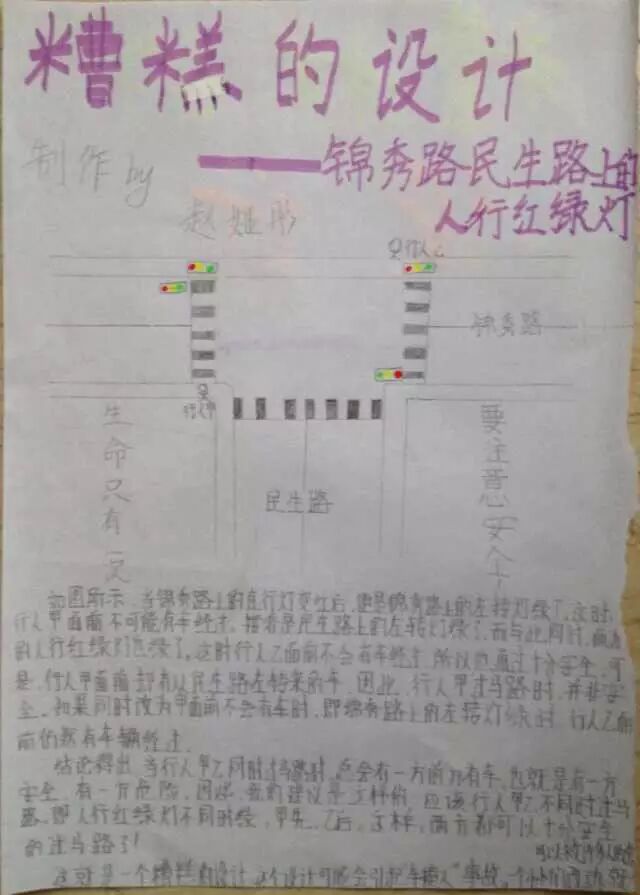 糟糕的设计
——锦秀路民生路上的
人行红绿灯
制作by
赵姬彤
锦秀路
行人甲
民生路
生命只有一次
要注意安全！
如图所示，当锦秀路上的直行灯变红后，便是锦秀路上的左转灯绿了，这时，
行人甲面前不可能有车经过，接着是民生路上的左转灯绿了，而与此同时，两
的人行红绿灯也绿了，这时行人乙面前不会有车经过，所以也通过十分安全，可
是，行人甲面前却有从民生路左转来的车，因此，行人甲过马路时，并非安
全。如果同时改为甲面前不会有车时，即锦秀路上的左转灯绿时，行人乙面
前仍然有车辆经过。
结论得出，当行人甲乙同时过马路时，总会有一方前方有车，也就是有一方
安全，有一方危险，因此，我的建议是这样的，应该行人甲乙不同时过马
路，即人行红绿灯不同时绿，甲先，乙后，这样，两方都可以十分安全
的过马路了！
这就是一个糟糕的设计，这个设计可能会引起“车撞人”事故，一个小小的